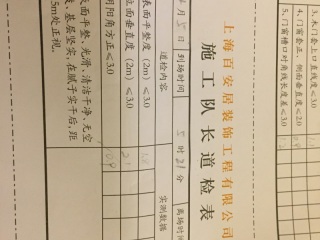 3、木门套上口直线度≤3.0
2、门窗正、侧面垂直度≤2.0
6、门窗槽口对角线长度差≤3.0
上海百安居装饰工程有限公司
施工队长道检表
月5日 到场时间 5时21分 离场时间
道检内容 实测数据
表面平整度（2m）≤3.0
立面垂直度（2m）≤3.0 2
阴阳角方正≤3.0 0.9
表面平整、光滑、清洁干净、无空
、基层坚实，在腻子实干后，距
5m处正视。